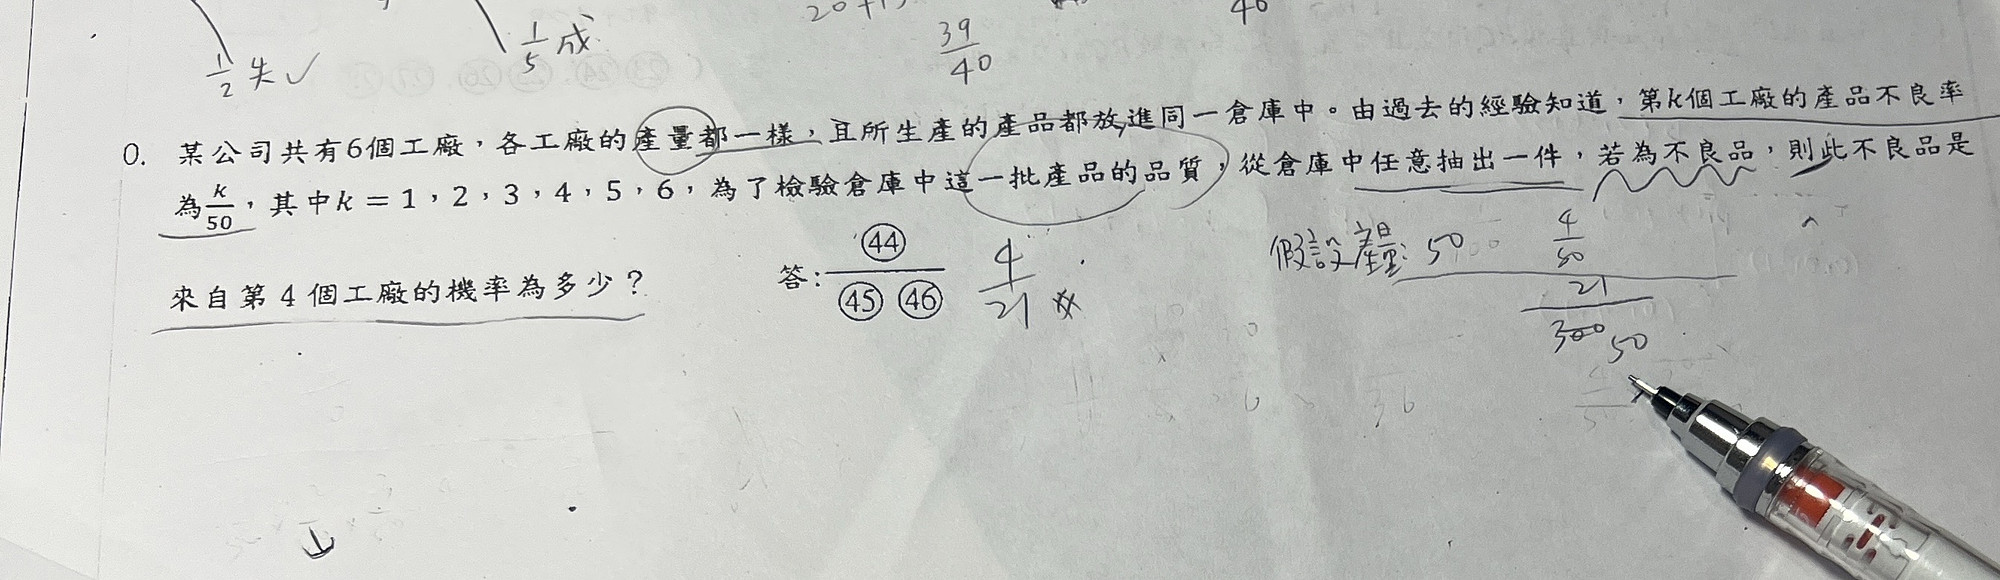 1/2 失✓
1/5 成
20+1
39/40
40
0. 某公司共有6個工廠，各工廠的產量都一樣，且所生產的產品都放進同一倉庫中。由過去的經驗知道，第k個工廠的產品不良率
為k/50，其中k＝1，2，3，4，5，6，為了檢驗倉庫中這一批產品的品質，從倉庫中任意抽出一件，若為不良品，則此不良品是
來自第 4 個工廠的機率為多少？
答：㊹/㊺㊻
4/21
假設產量：50
4/50
21/300 50